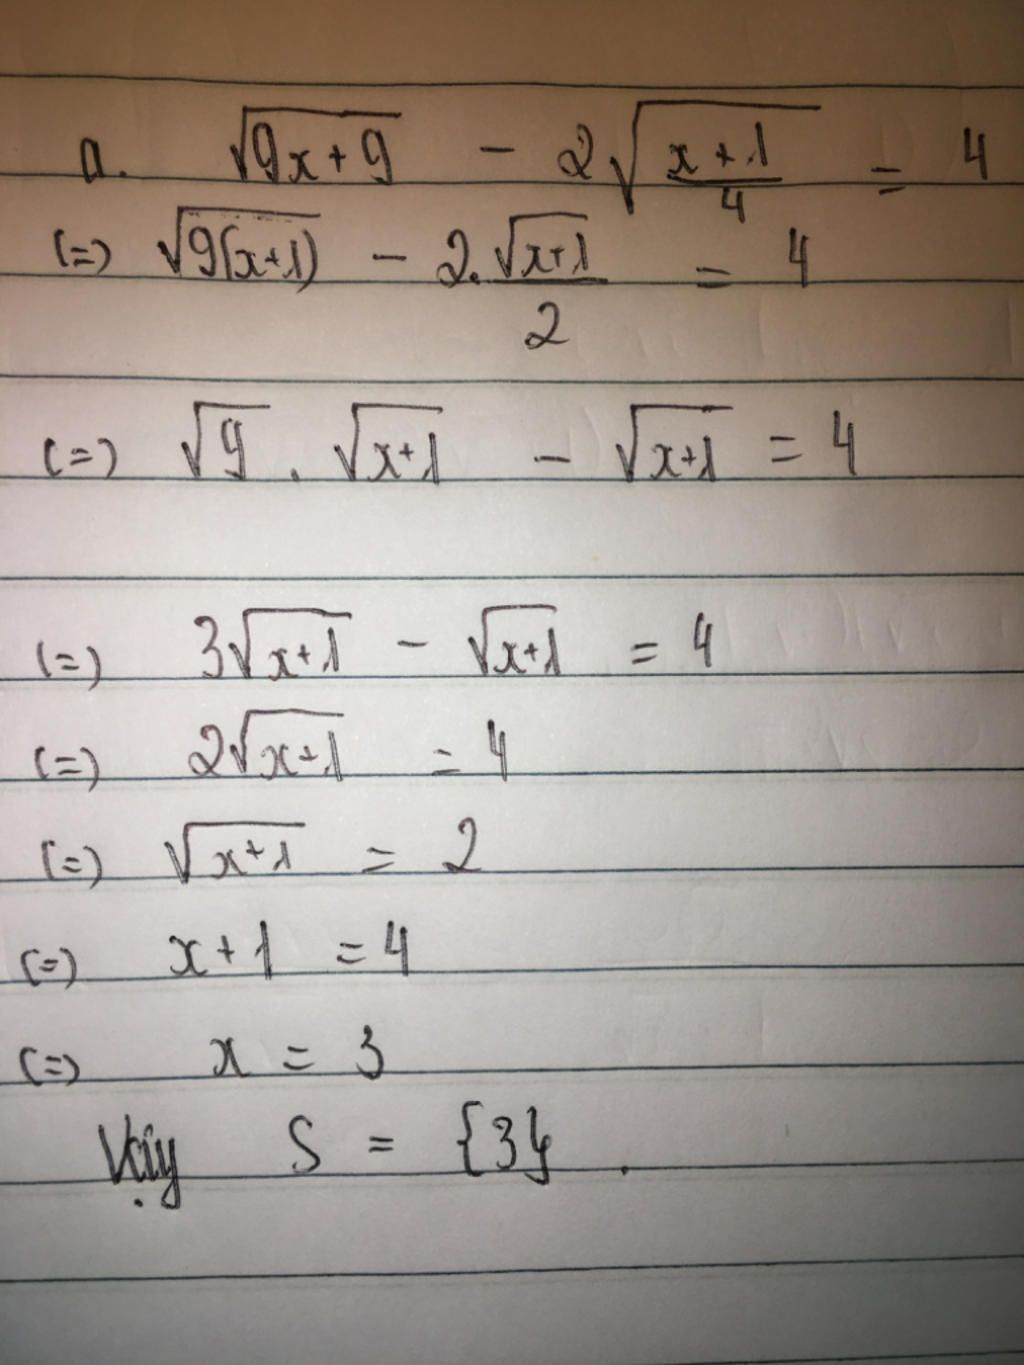 a. √(9x+9) - 2√((x+1)/4) = 4
(=) √(9(x+1)) - 2.√(x+1)/2 = 4
(=) √9 . √(x+1) - √(x+1) = 4
(=) 3√(x+1) - √(x+1) = 4
(=) 2√(x+1) = 4
(=) √(x+1) = 2
(=) x+1 = 4
(=) x = 3
Vậy S = {3} .